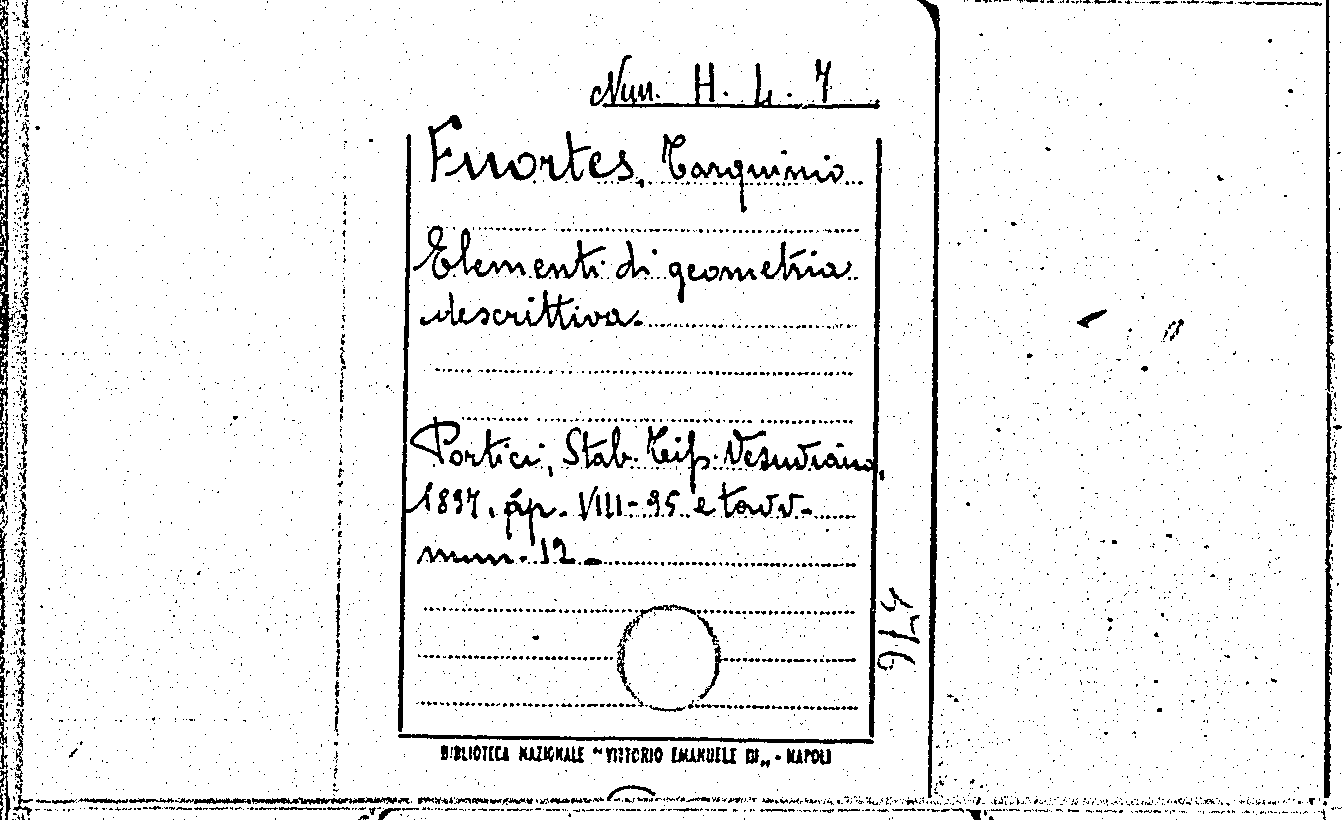 Nun. H. 4. 7
Fuortes, Tarquinio
Elementi di geometria
descrittiva.
Portici, Stab. Tip. Vesuviano,
1897. pp. VIII-95 e tavv.
num. 12.
BIBLIOTECA NAZIONALE "VITTORIO EMANUELE III„ - NAPOLI